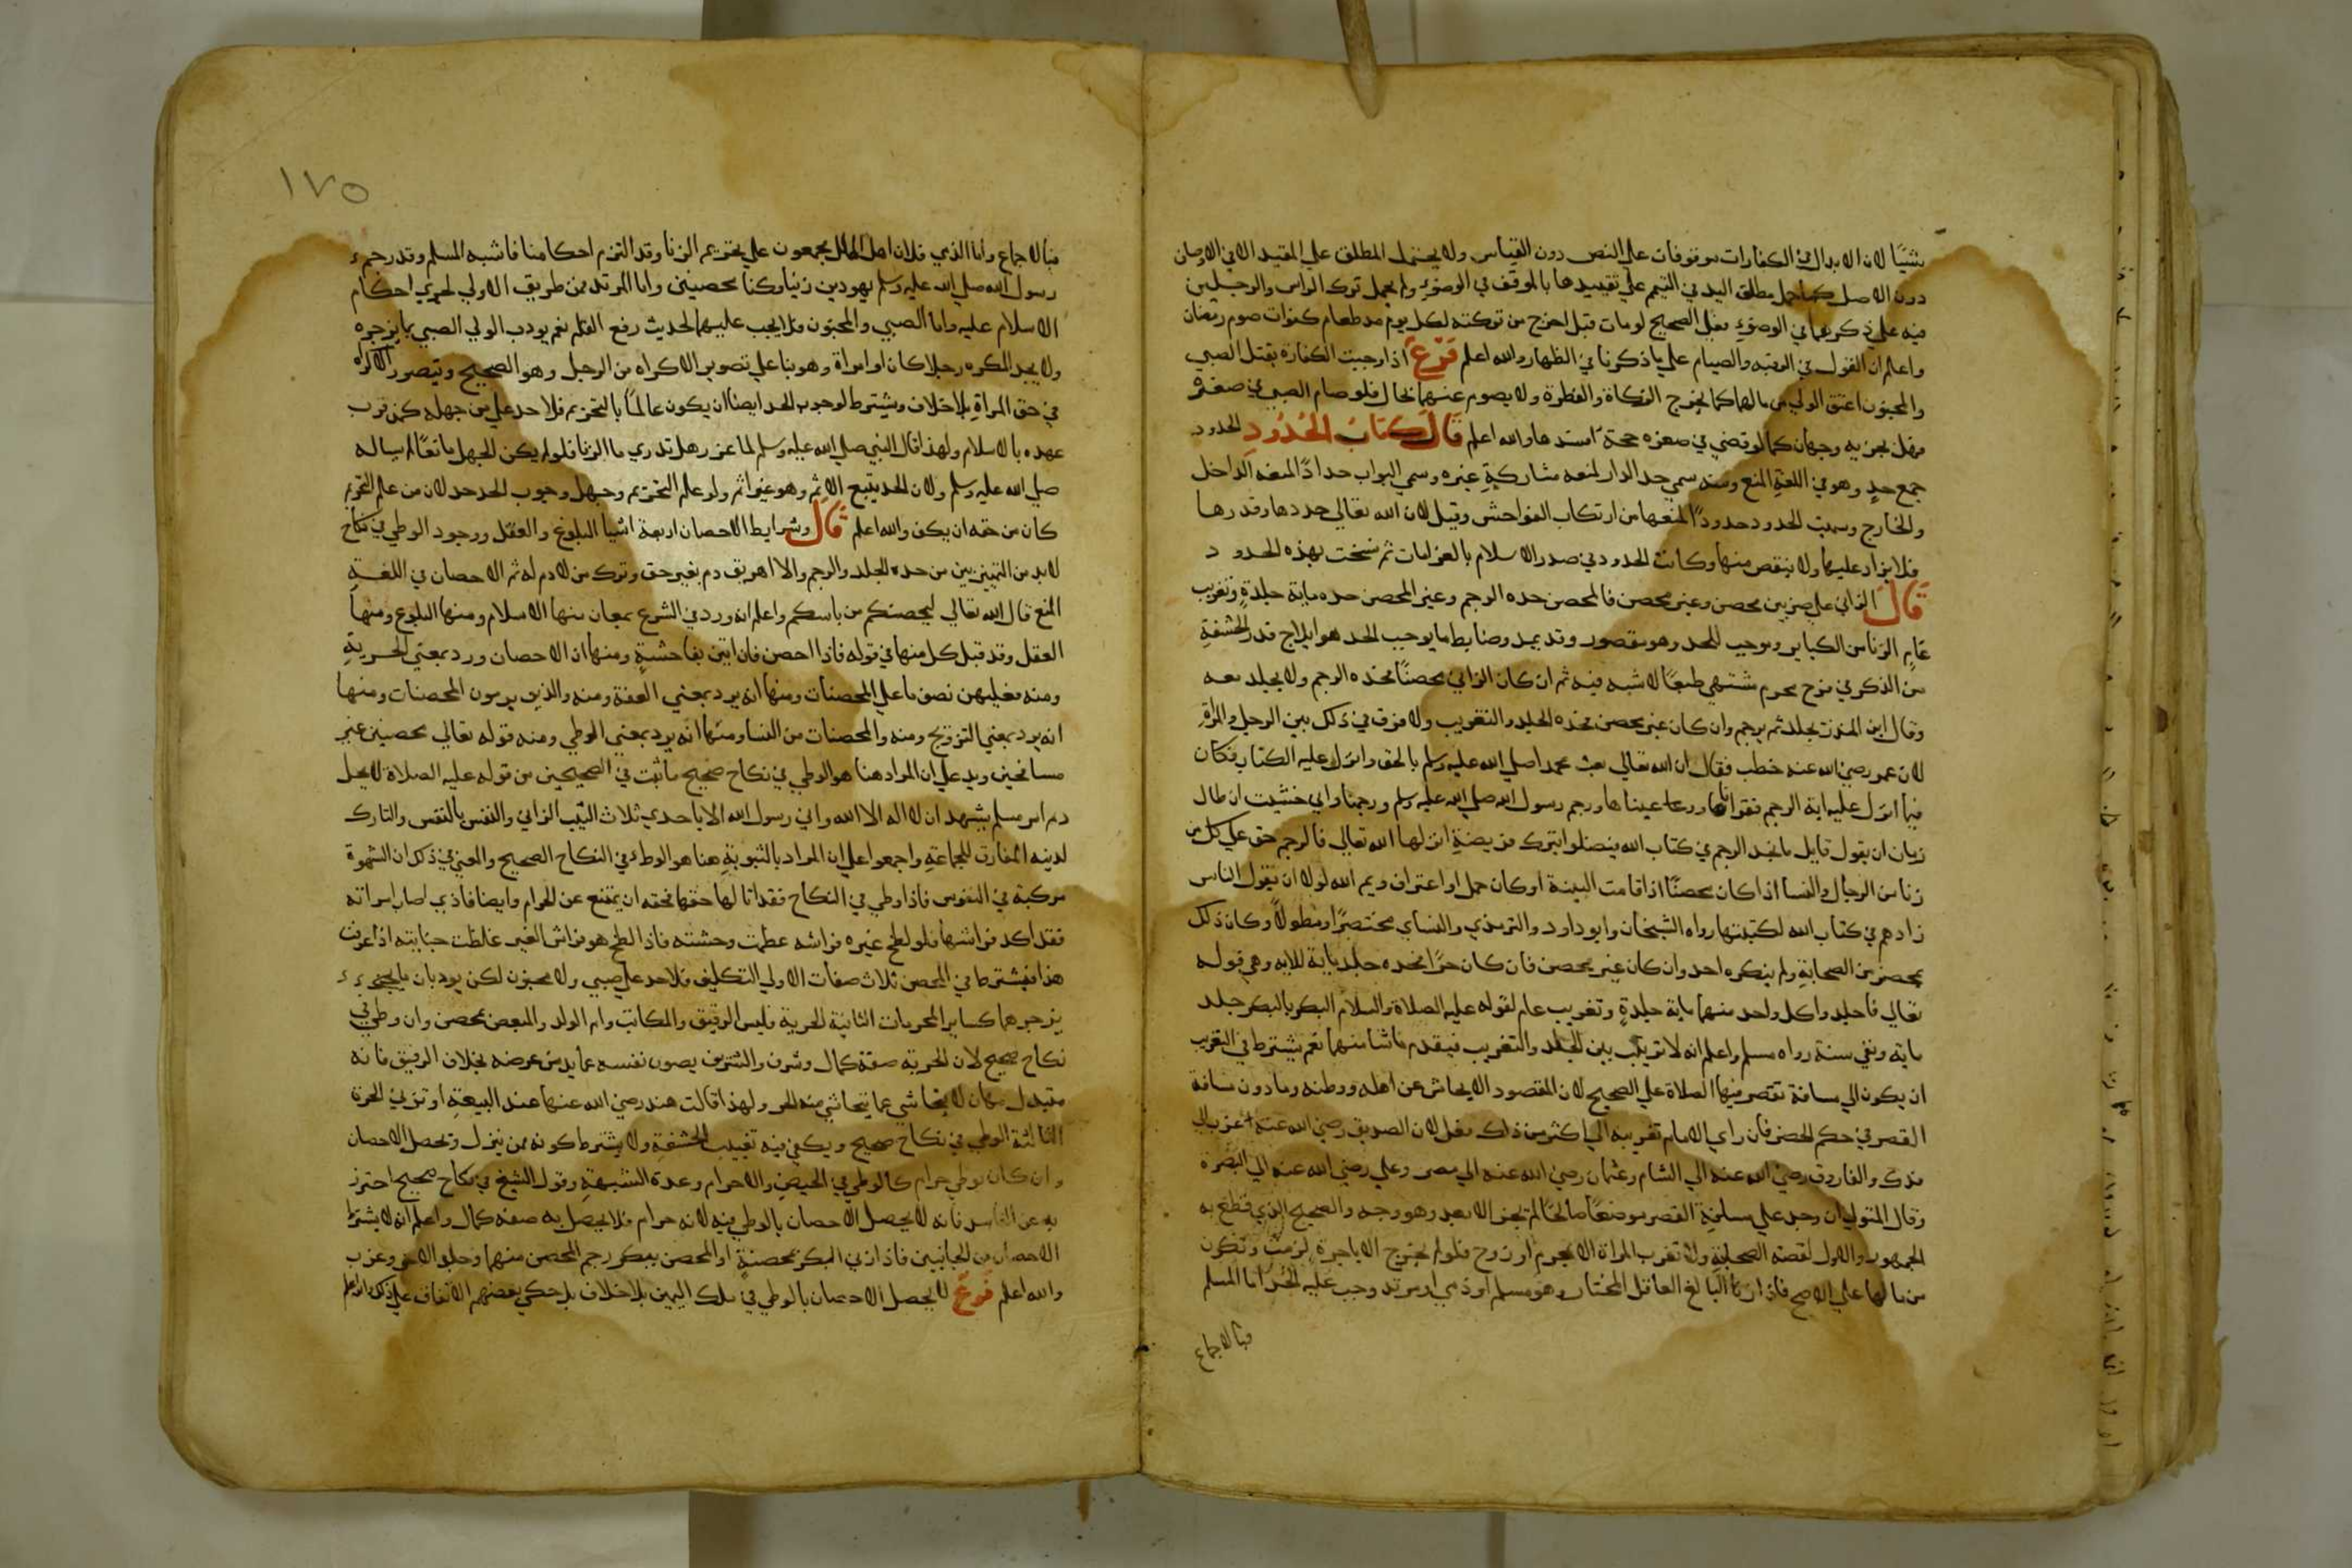 شيئا لان الابدال في الكفارات موقوفات على النص دون القياس ولا يحتمل المطلق على المقيد الا في الاوصاف
دون الاصل كما حمل مطلق اليد في التيمم على تقييدها بالمرفق في الوضوء ولم يحمل ترك الراس والرجلين
فيه على ذكرهما في الوضوء فعلى الصحيح لو مات قبل اخرج من تركته لكل يوم مد طعام كفوات صوم رمضان
واعلم ان القول في الرقبه والصيام على ما ذكرنا في الظهار والله اعلم فرع اذا وجبت الكفارة بقتل الصبي
والمجنون اعتق الولي من مالهما كما يخرج الزكاة والفطرة ولا يصوم عنهما بحال فلو صام الصبي في صغره
فهل يجزيه وجهان كما لو قضي في صغره حجة افسدها والله اعلم قال كتاب الحدود الحدود
جمع حد وهو في اللغة المنع ومنه سمي حد الدار لمنعه مشاركة غيره وسمي البواب حدادًا لمنعه الداخل
والخارج وسميت الحدود حدودًا لمنعها من ارتكاب الفواحش وقيل لان الله تعالي حددها وقدرها
فلا يزاد عليها ولا ينقص منها وكانت الحدود في صدر الاسلام بالغرامات ثم نسخت بهذه الحدود
قال الزاني علي ضربين محصن وغير محصن فالمحصن حده الرجم وغير المحصن حده ماية جلدة وتغريب
عام الزنا من الكباير وموجب للحد وهو مقصور وقد يمد وضابط ما يوجب الحد هو ايلاج قدر الحشفة
من الذكر في فرج محرم مشتهي طبعًا لا شبه فيه ثم ان كان الزاني محصنًا فحده الرجم ولا يجلد معه
وقال ابن المنذر يجلد ثم يرجم وان كان غير محصن فحده الجلد والتغريب ولا فرق في ذلك بين الرجل والمراة
لان عمر رضي الله عنه خطب فقال ان الله تعالي بعث محمدا صلي الله عليه وسلم بالحق وانزل عليه الكتاب فكان
فيما انزل عليه اية الرجم فقراناها ووعيناها ورجم رسول الله صلي الله عليه وسلم ورجمنا واني خشيت ان طال
زمان ان يقول قايل ما نجد الرجم في كتاب الله فيضلوا بترك فريضة انزلها الله تعالي فالرجم حق علي كل من
زنا من الرجال والنسا اذا كان محصنًا اذا قامت البينة او كان حمل او اعتراف ويم الله لولا ان يقول الناس
زادهم في كتاب الله لكتبتها رواه الشيخان وابو داود والترمذي والنساي مختصرًا ومطولاً وكان ذلك
بمحضر من الصحابة ولم ينكره احد وان كان غير محصن فان كان حرًا فحده جلد ماية للاية وهي قوله
تعالي فاجلدوا كل واحد منهما ماية جلدة وتغريب عام لقوله عليه الصلاة والسلام البكر بالبكر جلد
ماية ونفي سنة رواه مسلم واعلم انه لا ترتيب بين الجلد والتغريب فيقدم ما شا منهما نعم يشترط في التغريب
ان يكون الي مسافة تقصر فيها الصلاة علي الصحيح لان المقصود الايحاش عن اهله ووطنه وما دون مسافة
القصر في حكم الحضر فان راي الامام تغريبه الي اكثر من ذلك فعل لان الصديق رضي الله عنه غرب الي
فدك والفاروق رضي الله عنه الي الشام وعثمان رضي الله عنه الي مصر وعلي رضي الله عنه الي البصرة
وقال المتولي ان وجد علي مسافة القصر موضعًا صالحًا لم يجز الابعد وهو وجه والصحيح الذي قطع به
الجمهور والاول لقصة الصحابة ولا تغرب المراة الا بمحرم او زوج فلو لم يخرج الا باجرة لزمت وتكون
من مالها علي الاصح فاذا زنا البالغ العاقل المختار وهو مسلم او ذمي او مرتد وجب عليه الحد اما المسلم
فبالاجماع
١٧٥
فبالاجماع واما الذمي فلان اهل الملل يجمعون علي تحريم الزنا وقد التزم احكامنا فاشبه المسلم وقد رجم
رسول الله صلي الله عليه وسلم يهوديين زنيا وكنا محصنين واما المرتد فمن طريق الاولي لجري احكام
الاسلام عليه واما الصبي والمجنون فلا يجب عليهما لحديث رفع القلم نعم يودب الولي الصبي بما يزجره
ولا يحد المكره رجلا كان او امراة وهو بنا علي تصوير الاكراه من الرجل وهو الصحيح ويتصور الاكراه
في حق المراة بلا خلاف ويشترط لوجوب الحد ايضا ان يكون عالمًا بالتحريم فلا حد علي من جهله كمن قرب
عهده بالاسلام ولهذا قال النبي صلي الله عليه وسلم لماعز هل تدري ما الزنا فلو لم يكن الجهل مانعًا لم يساله
صلي الله عليه وسلم ولان الحد يتبع الاثم وهو غير اثم ولو علم التحريم وجهل وجوب الحد حد لان من علم التحريم
كان من حقه ان يكف والله اعلم قال وشرايط الاحصان اربعة اشيا البلوغ والعقل ووجود الوطي في نكاح
لا بد من التمييز بين من حده الجلد والرجم والا اهريق دم بغير حق وترك من لا دم له ثم الاحصان في اللغة
المنع قال الله تعالي ليحصنكم من باسكم واعلم انه ورد في الشرع بمعان منها الاسلام ومنها البلوغ ومنها
العقل وقد قيل كل منها في قوله فاذا احصن فان اتين بفاحشة ومنها ان الاحصان ورد بمعني الحرية
ومنه فعليهن نصف ما علي المحصنات ومنها انه يرد بمعني العفة ومنه والذين يرمون المحصنات ومنها
انه يرد بمعني التزويج ومنه والمحصنات من النسا ومنها انه يرد بمعني الوطي ومنه قوله تعالي محصنين غير
مسافحين ويدل علي ان المراد هنا هو الوطي في نكاح صحيح ما ثبت في الصحيحين من قوله عليه الصلاة لا يحل
دم امر مسلم يشهد ان لا اله الا الله واني رسول الله الا باحدي ثلاث الثيب الزاني والنفس بالنفس والتارك
لدينه المفارق للجماعة واجمعوا علي ان المراد بالثيوبة هنا هو الوطء في النكاح الصحيح والمعني في ذلك ان الشهوة
مركبة في النفوس فاذا وطي في النكاح فقد انا لها حقها فحقه ان يمتنع عن الحرام وايضا فاذي اصاب امراته
فقد اكد فراشها فلو لطخ غيره فراشه عظمت وحشته فاذا لطخ هو فراش الغير غلظت جنايته اذا عرفت
هذا فيشترط في المحصن ثلاث صفات الاولي التكليف فلا حد علي صبي ولا مجنون لكن يودبان
يزجرهما كساير المحرمات الثانية الحرية فليس الرقيق والمكاتب وام الولد والمبعض بمحصن وان وطي في
نكاح صحيح لان الحرية صفة كمال وشرف والشريف يصون نفسه عما يدنس عرضه بخلاف الرقيق فانه
متبدل مهان لا يتحاشي عما يتحاشي منه الحر ولهذا قالت هند رضي الله عنها عند البيعة او تزني الحرة
الثالثة الوطي في نكاح صحيح ويكفي فيه تغييب الحشفة ولا يشترط كونه ممن ينزل وتحصل الاحصان
وان كان بوطي حرام كالوطي في الحيض والاحرام وعدة الشبهة وقول الشيخ في نكاح صحيح احترز
به عن الفاسد فانه لا يحصل الاحصان بالوطي فيه لانه حرام فلا يحصل به صفة كمال واعلم انه لا يشترط
الاحصان من الجانبين فاذا زني البكر بمحصنة او المحصن ببكر رجم المحصن منهما وجلد الاخر وغرب
والله اعلم فرع لا يحصل الاحصان بالوطي في ملك اليمين بلا خلاف بل حكي بعضهم الاتفاق علي ذلك والله اعلم